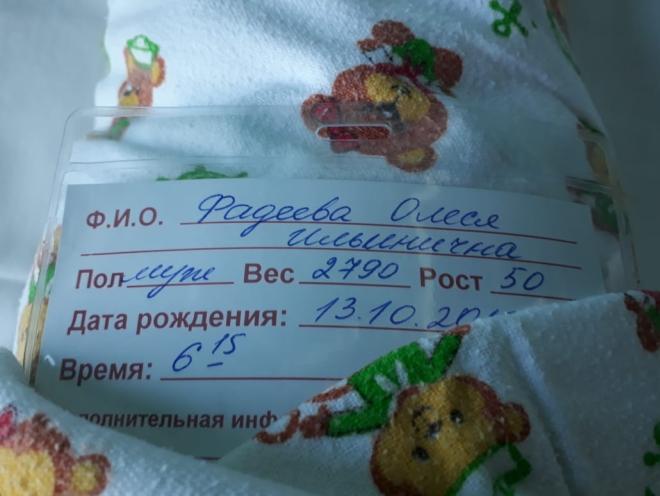 Ф.И.О. Фадеева Олеся
Ильинична
Пол муж Вес 2790 Рост 50
Дата рождения: 13.10.20
Время: 6 15